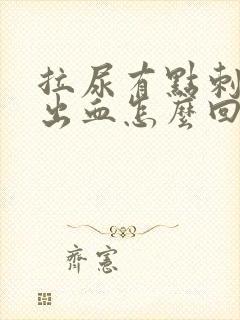 拉尿有點刺
出血怎麼回
齊憲